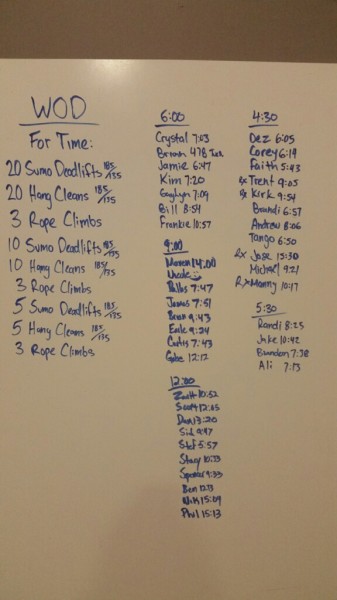 WOD
For Time:
20 Sumo Deadlifts 185/135
20 Hang Cleans 185/135
3 Rope Climbs
10 Sumo Deadlifts 185/135
10 Hang Cleans 185/135
3 Rope Climbs
5 Sumo Deadlifts 185/135
5 Hang Cleans 185/135
3 Rope Climbs
6:00
Crystal 7:03
Jamie 6:47
Kim 7:20
7:09
Bill 8:54
Frankie 10:57
9:00
14:00
7:47
James 7:51
Bren 9:43
9:24
Curtis 7:43
Gabe 12:12
12:00
10:52
Scott 12:05
Dan 13:20
Sid 9:47
Stef 5:57
Stacy
Spencer 9:33
Ben
Nik 15:09
Phil 15:13
4:30
Dez 6:05
Corey 6:19
Faith 5:43
Rx Trent 9:05
Rx Kirk 9:54
Brandi 6:57
Andrew 8:06
Tango 6:50
Rx Jose 13:30
Michael 9:21
Rx Manny 10:17
5:30
Randi 8:25
Jake 10:42
Brandon 7:38
Ali 7:13